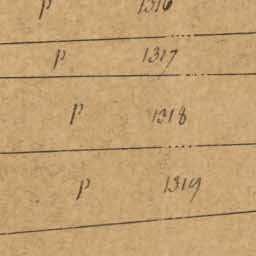 P 1316
P 1317
P 1318
P 1319